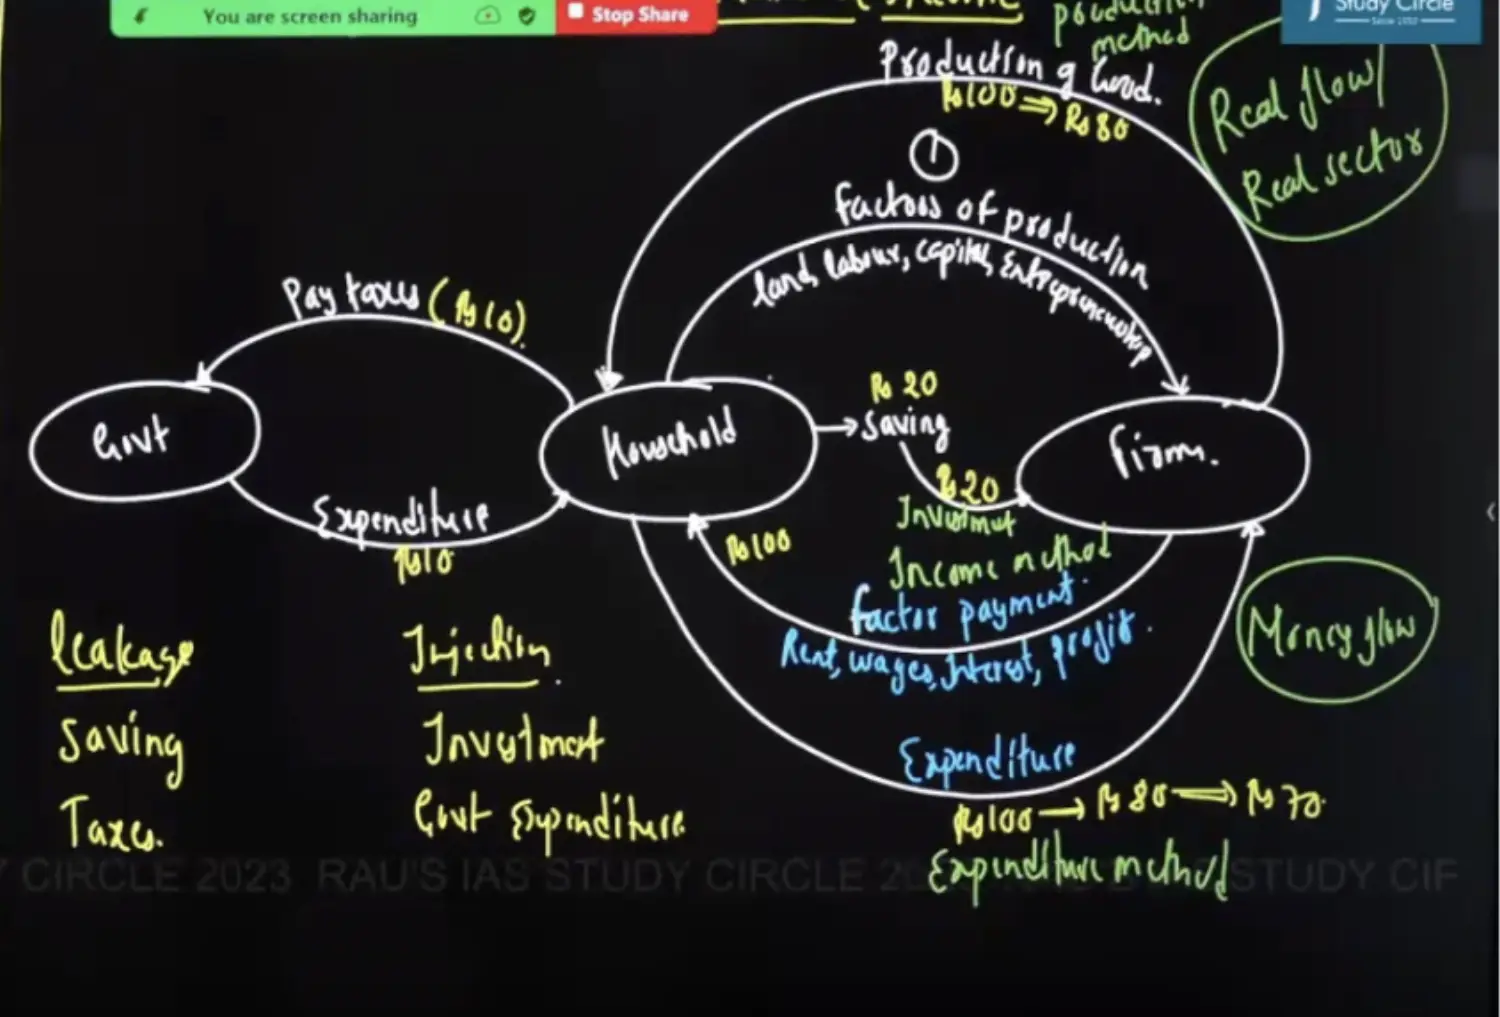 You are screen sharing
Stop Share
Study Circle
Since 1953
method
Production of Good.
Rs 100 ⇒ Rs 80
Real flow/
Real sector
1
Factors of production
land, labour, capital, Entrepreneurship
Pay taxes (Rs 10).
Govt
Household
Rs 20
→ Saving
Firms.
Rs 20
Investment
Expenditure
Rs 10
Rs 100
Income method
factor payment.
Rent, wages, Interest, profit.
Money flow
leakage
Injection
Saving
Investment
Taxes.
Govt Expenditure
Expenditure
Rs 100 → Rs 80 ⇒ Rs 70.
Expenditure method
CIRCLE 2023 RAU'S IAS STUDY CIRCLE STUDY CIR